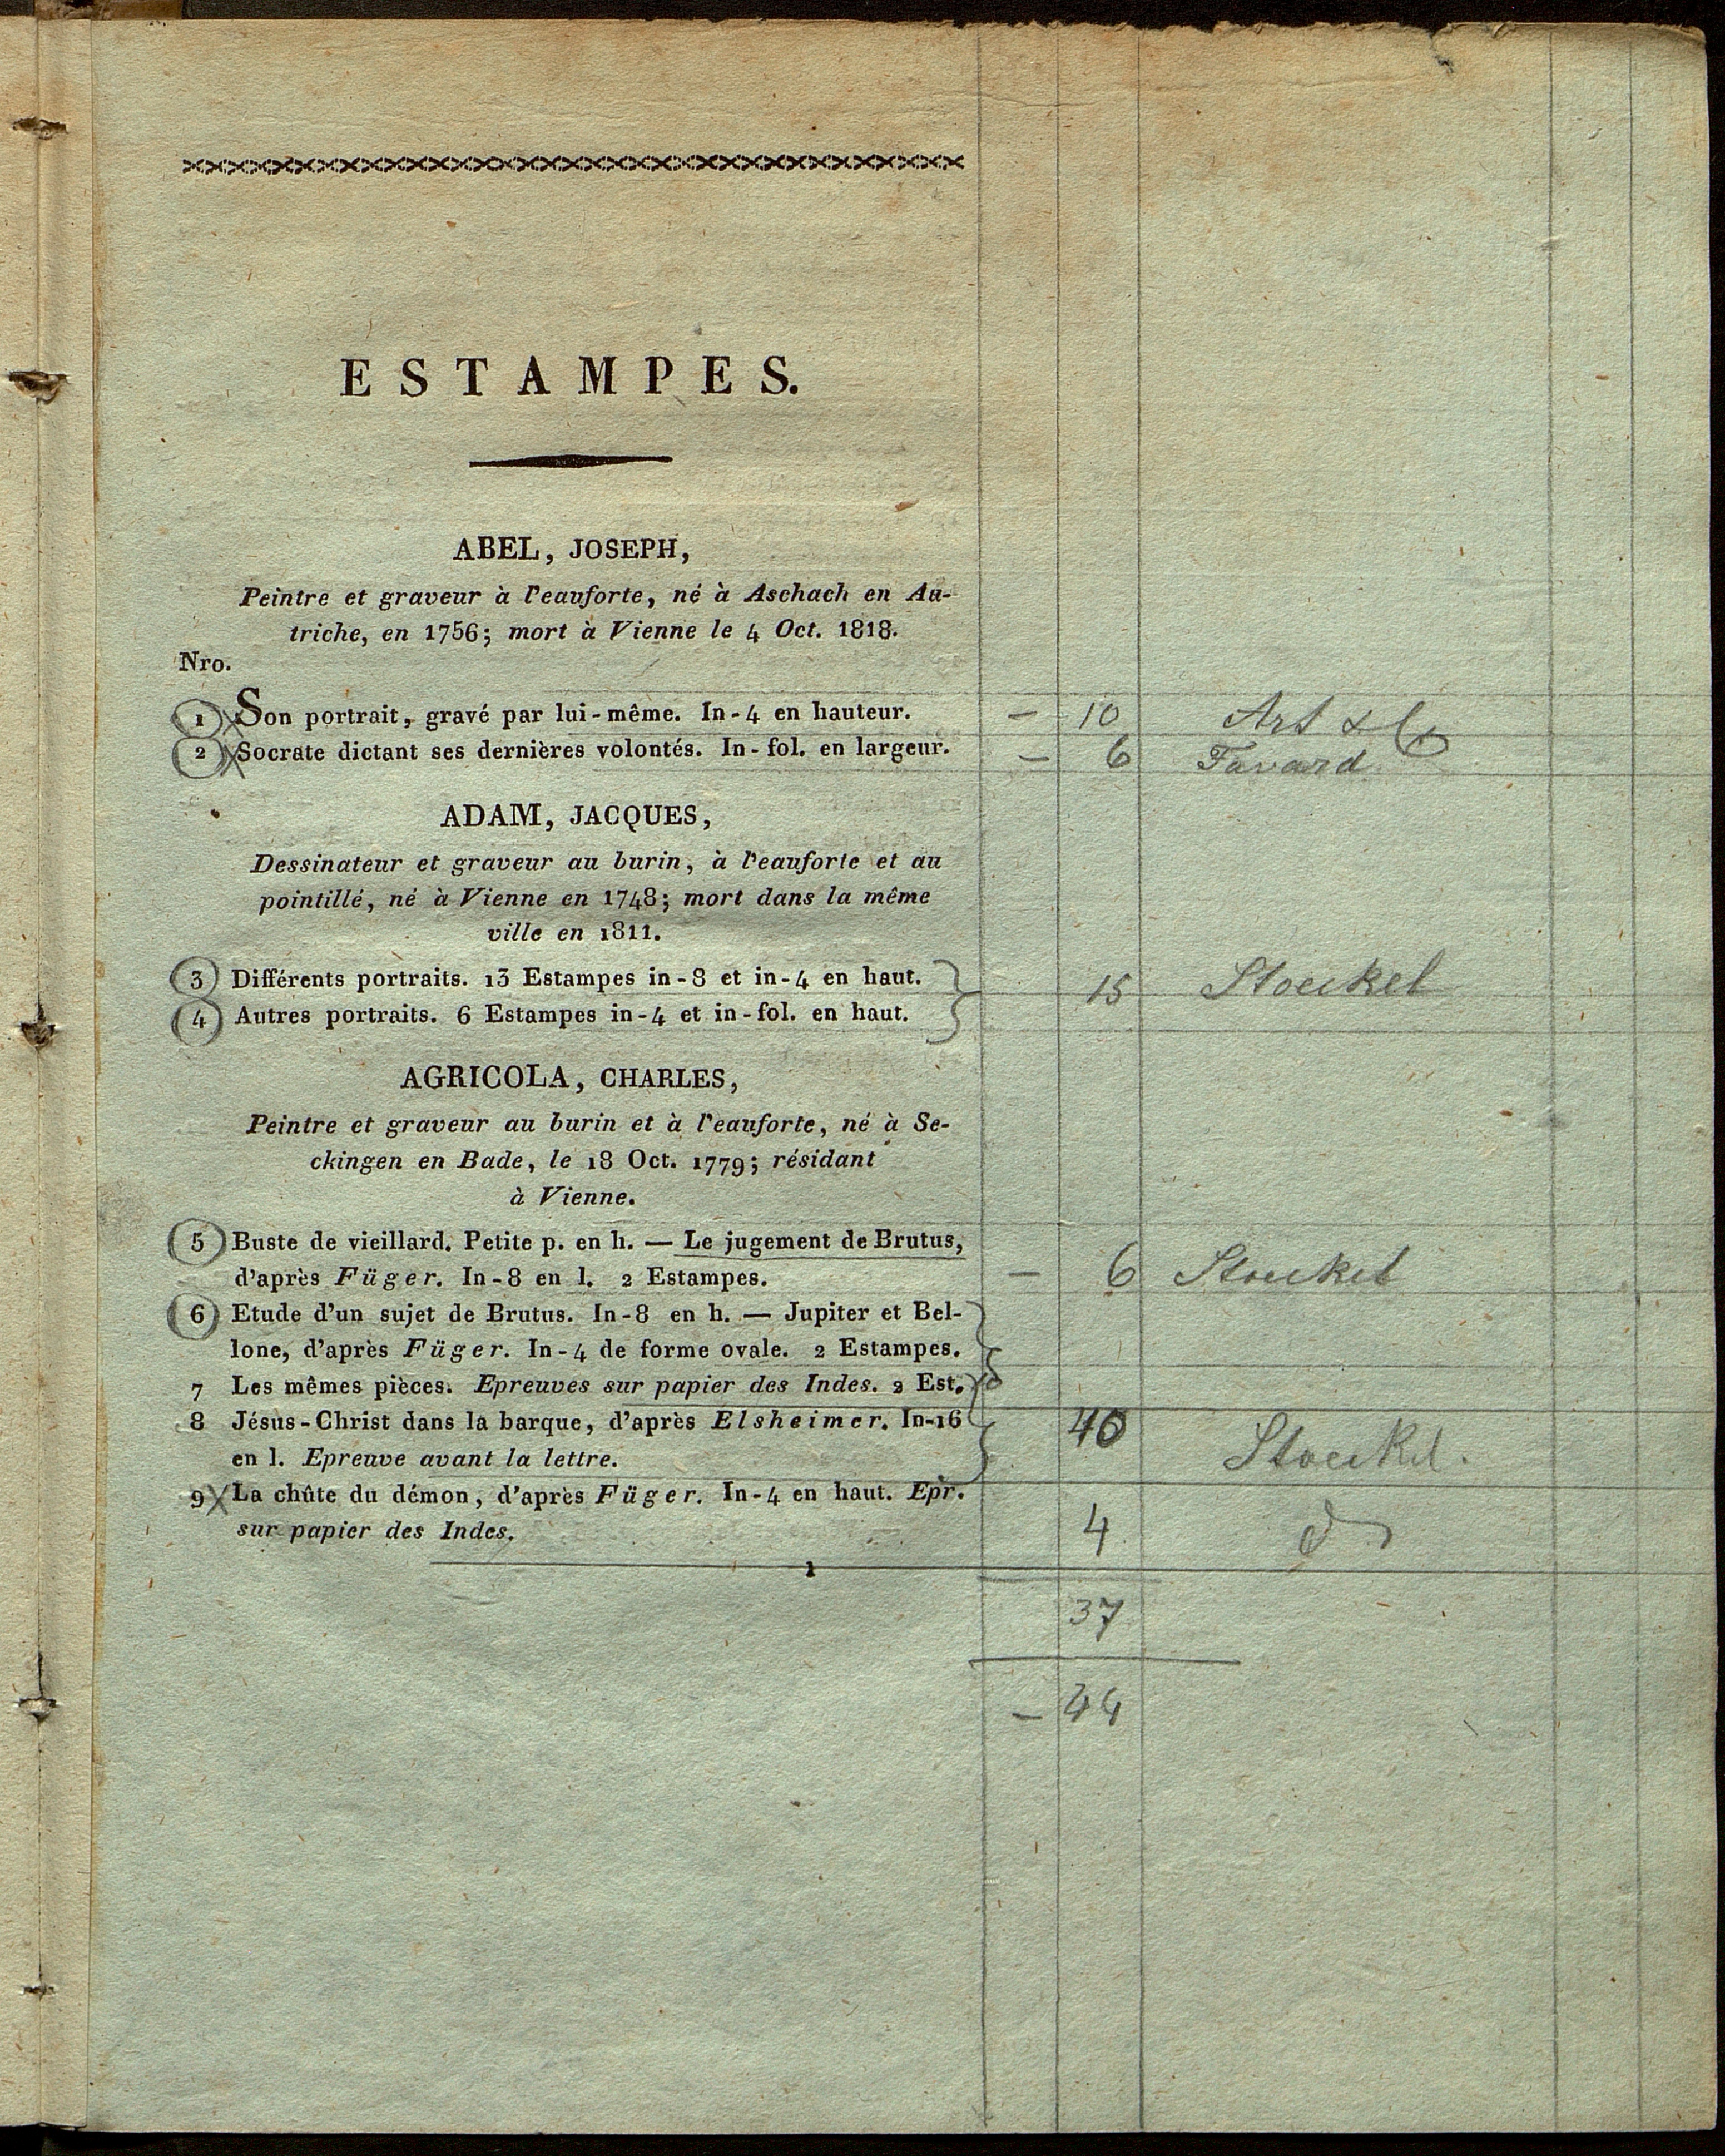 ESTAMPES.
ABEL, JOSEPH,
Peintre et graveur à l'eauforte, né à Aschach en Au-
triche, en 1756; mort à Vienne le 4 Oct. 1818.
Nro.
1 Son portrait, gravé par lui-même. In-4 en hauteur. — 10 Art & Co
2 Socrate dictant ses dernières volontés. In-fol. en largeur. — 6 Favard
ADAM, JACQUES,
Dessinateur et graveur au burin, à l'eauforte et au
pointillé, né à Vienne en 1748; mort dans la même
ville en 1811.
3 Différents portraits. 13 Estampes in-8 et in-4 en haut. 15 Stoeckel
4 Autres portraits. 6 Estampes in-4 et in-fol. en haut.
AGRICOLA, CHARLES,
Peintre et graveur au burin et à l'eauforte, né à Se-
ckingen en Bade, le 18 Oct. 1779; résidant
à Vienne.
5 Buste de vieillard. Petite p. en h. — Le jugement de Brutus,
d'après Füger. In-8 en l. 2 Estampes. — 6 Stoeckel
6 Etude d'un sujet de Brutus. In-8 en h. — Jupiter et Bel-
lone, d'après Füger. In-4 de forme ovale. 2 Estampes.
7 Les mêmes pièces. Epreuves sur papier des Indes. 2 Est.
8 Jésus-Christ dans la barque, d'après Elsheimer. In-16 40
en l. Epreuve avant la lettre. Stoeckel.
9 La chûte du démon, d'après Füger. In-4 en haut. Epr.
sur papier des Indes. 4
1
37
— 44